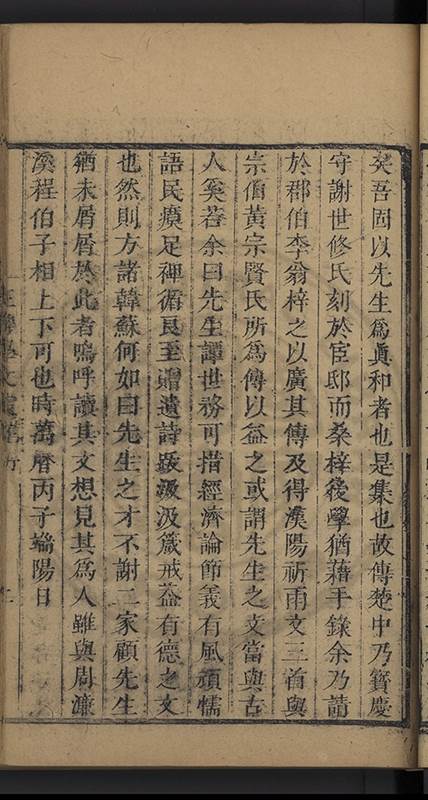 矣吾固以先生為眞和者也是集也故傳楚中乃寳慶
守謝世修氏刻於宦邸而桑梓後學猶藉手錄余乃請
於郡伯李翁梓之以廣其傳及得漢陽祈雨文三首與
宗伯黃宗賢氏所為傳以益之或謂先生之文當與古
人奚若余曰先生譚世務可措經濟論節義有風頑懦
語民瘼足裨循良至贈遺詩跋汲汲箴戒葢有德之文
也然則方諸韓蘇何如曰先生之才不謝二家顧先生
猶未屑屑於此者嗚呼讀其文想見其為人雖與周濂
溪程伯子相上下可也時萬曆丙子端陽日